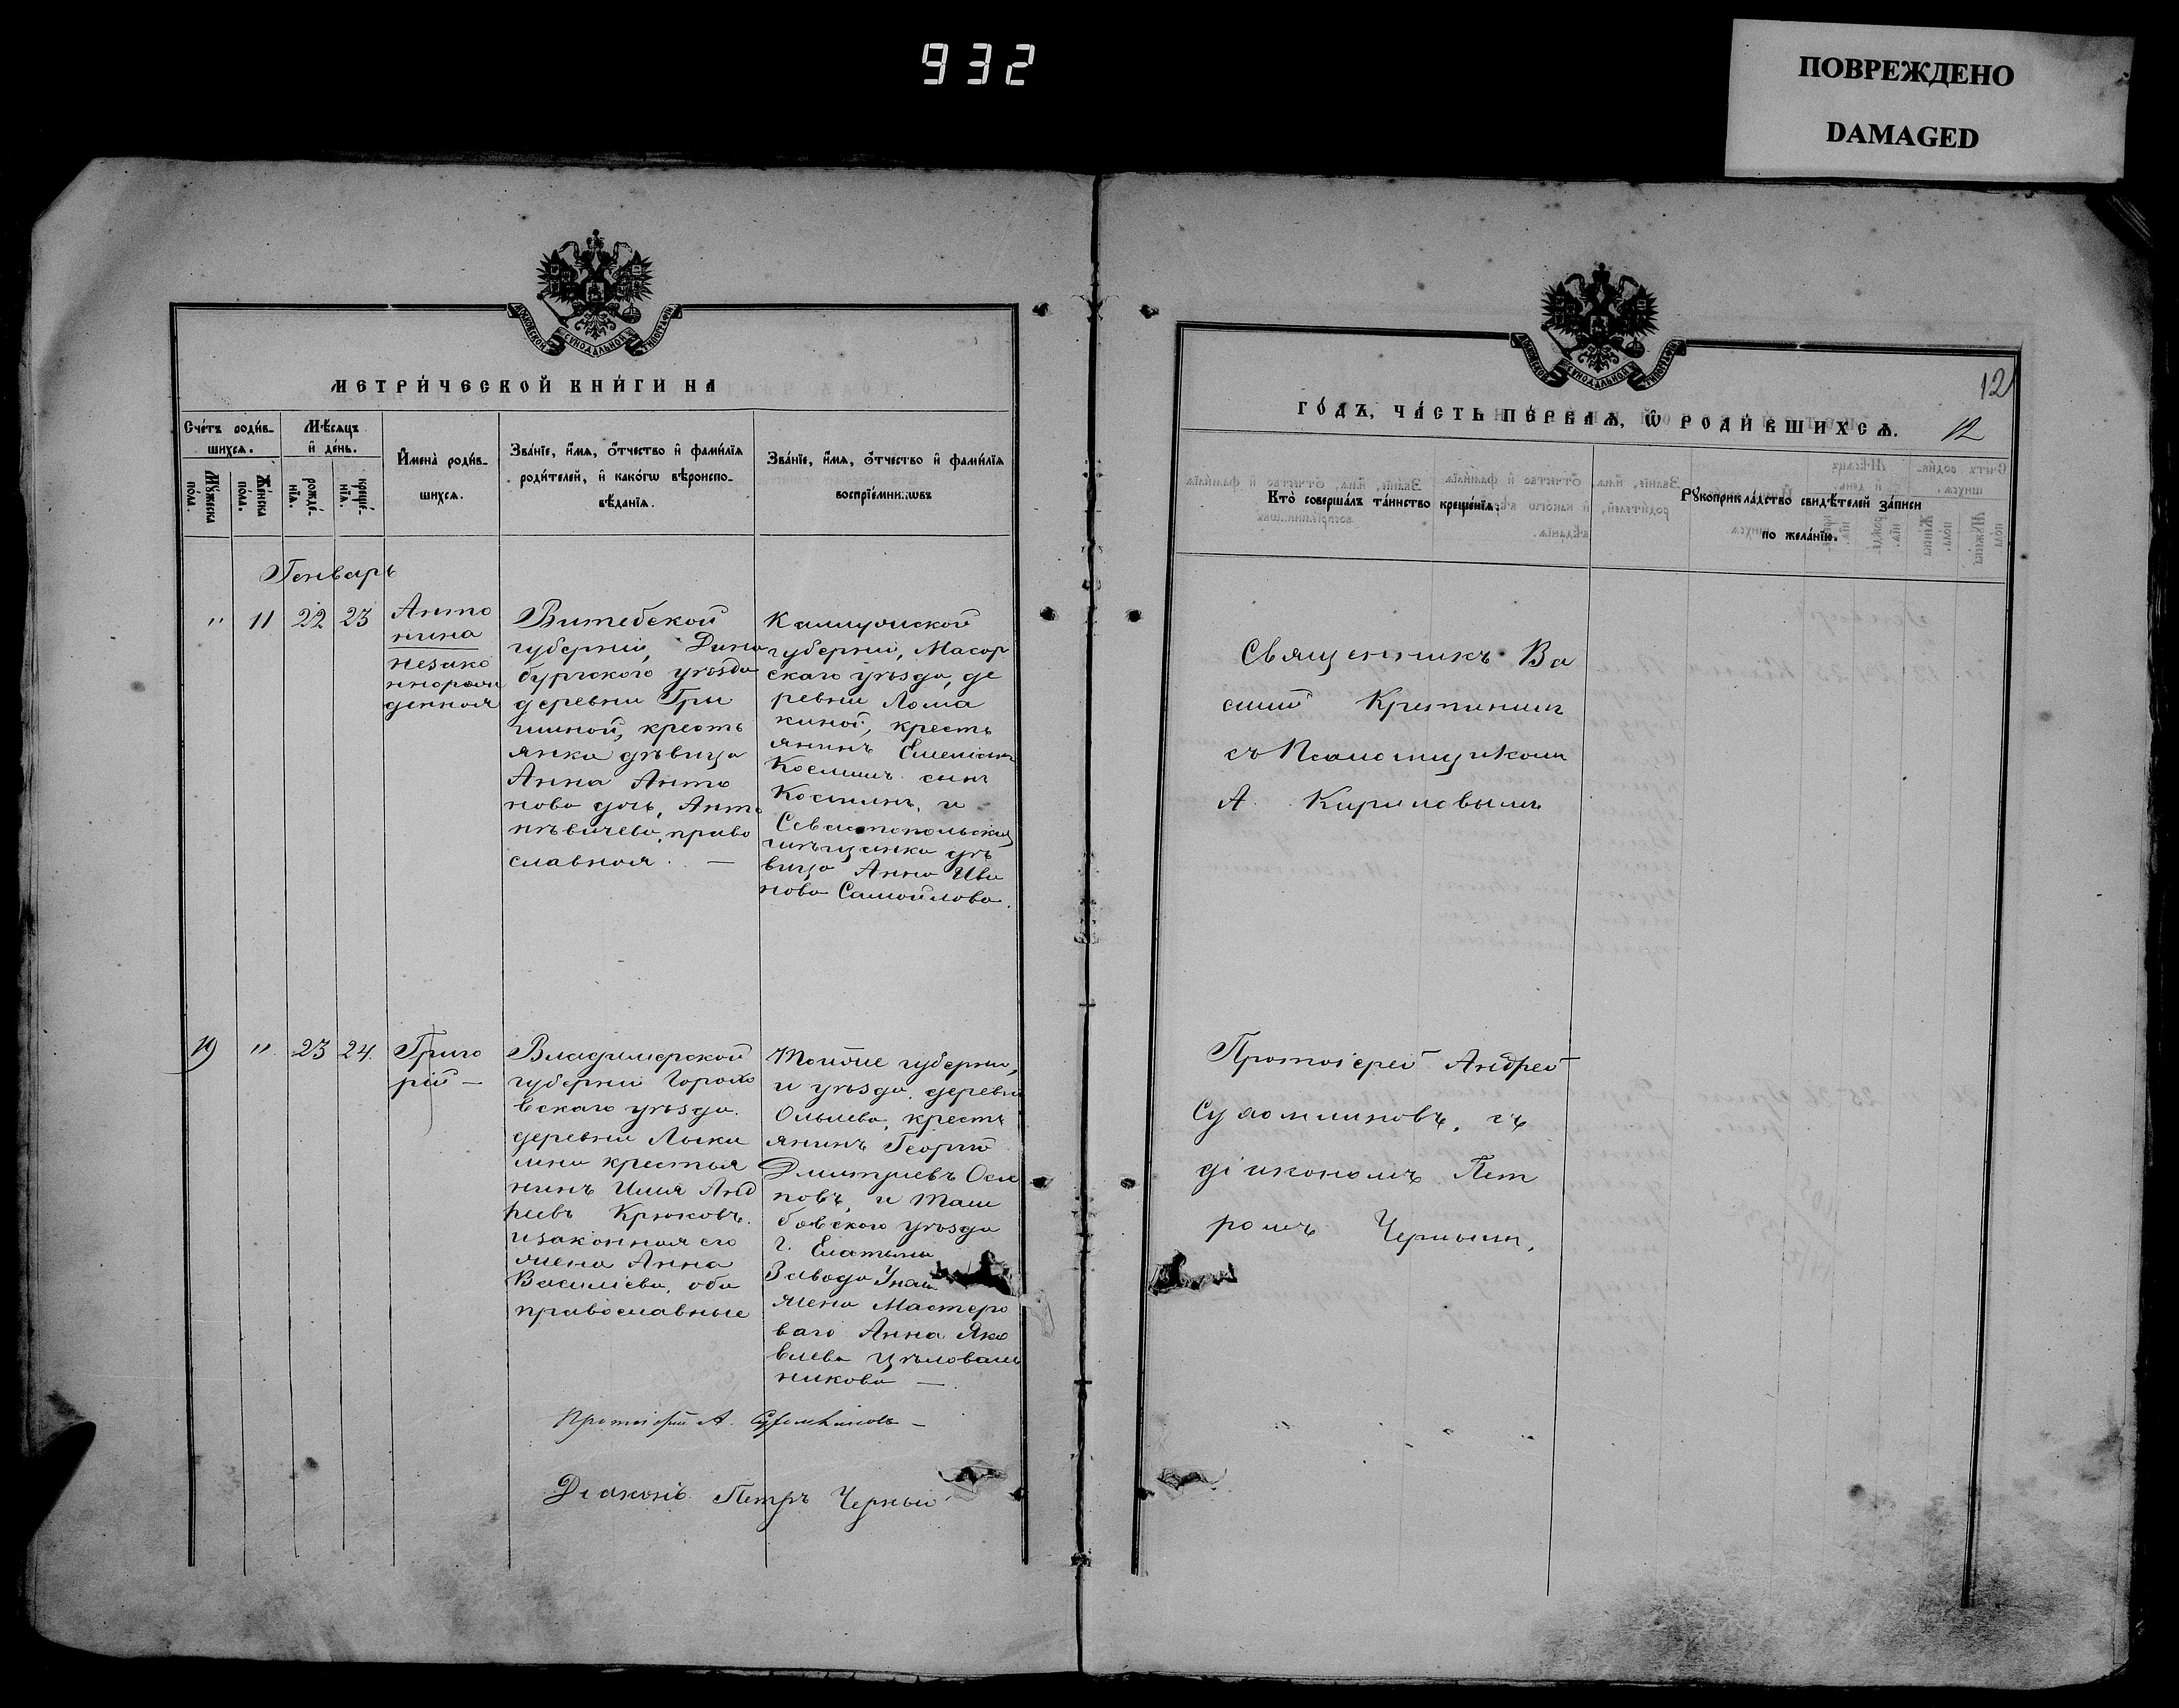 932
ПОВРЕЖДЕНО
DAMAGED
МОСКОВСКОЙ СѴНОДАЛЬНОЙ ТИПОГРАФІИ
МЕТРИ́ЧЕСКОЙ КНИ́ГИ НА
Сче́тъ роди́в-
шихсѧ.
Мꙋ́жеска по́ла.
Же́нска по́ла.
Мѣ́сѧцъ
и҆ де́нь.
рожде́-
нїѧ.
креще́-
нїѧ.
И҆мена̀ роди́в-
шихсѧ.
Зва́нїе, и҆́мѧ, ѻ҆́тчество и҆ фами́лїѧ
роди́телей, и҆ како́гѡ вѣроиспо-
вѣ́данїѧ.
Зва́нїе, и҆́мѧ, ѻ҆́тчество и҆ фами́лїѧ
воспрїе́мникѡвъ
Генварь
" 11 22 23
Анто
нина
незако
ннорож
денная
Витебской
губерніи, Дина
бургского уѣзда
деревни Гри
шиной, кресть
янка дѣвица
Анна Анто
нова дочь,
право
славная. —
губерніи, Масор
скаго уѣзда, де
ревни Лома
киной, кресть
янинъ Емеліанъ
Косминъ сынъ
Костинъ, и
Севастопольская
мѣщанка дѣ
вица Анна Ива
нова Самойлова.
19 " 23 24.
Григо
рій —
Владимерской
губерніи Горохо
вскаго уѣзда.
деревни
крестья
нинъ Илія Анд
реевъ Крюковъ.
и законная его
жена Анна
Василіева, оба
православные
Тойже губерніи,
и уѣзда, деревни
кресть
янинъ Георгій
Дмитріевъ Оси
повъ, и Там
бовского уѣзда
г. Елатьмы
Завода
жена Мастеро
ваго Анна Яко
влева Цѣловаль
никова —
Протоіерей А. Судомлиновъ —
Діаконъ Петръ Черный
МОСКОВСКОЙ СѴНОДАЛЬНОЙ ТИПОГРАФІИ
12
ГО́ДЪ, ЧА́СТЬ ПЕ́РВАѦ, Ѡ҆ РОДИ́ВШИХСѦ.
12
Кто̀ соверша́лъ та́инство креще́нїѧ.
Рꙋкоприкла́дство свидѣ́телей за́писи
по жела́нїю.
Священникъ Ва
силій Крестининъ
съ Псаломщикомъ
А. Кириловымъ
Протоіерей Андрей
Судомлиновъ, съ
діакономъ Пет
ромъ Чернымъ.